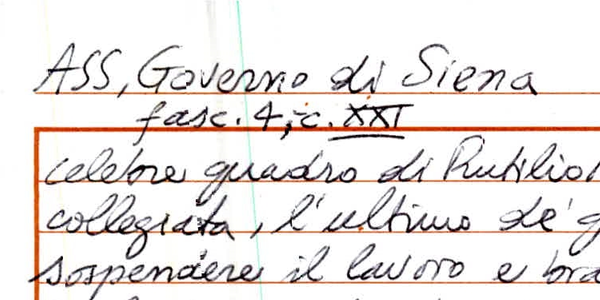 ASS, Governo di Siena
fasc. 4, c. XXI
celebre quadro di Rutilio
collegiata, l'ultimo de'
sospendere il lavoro e